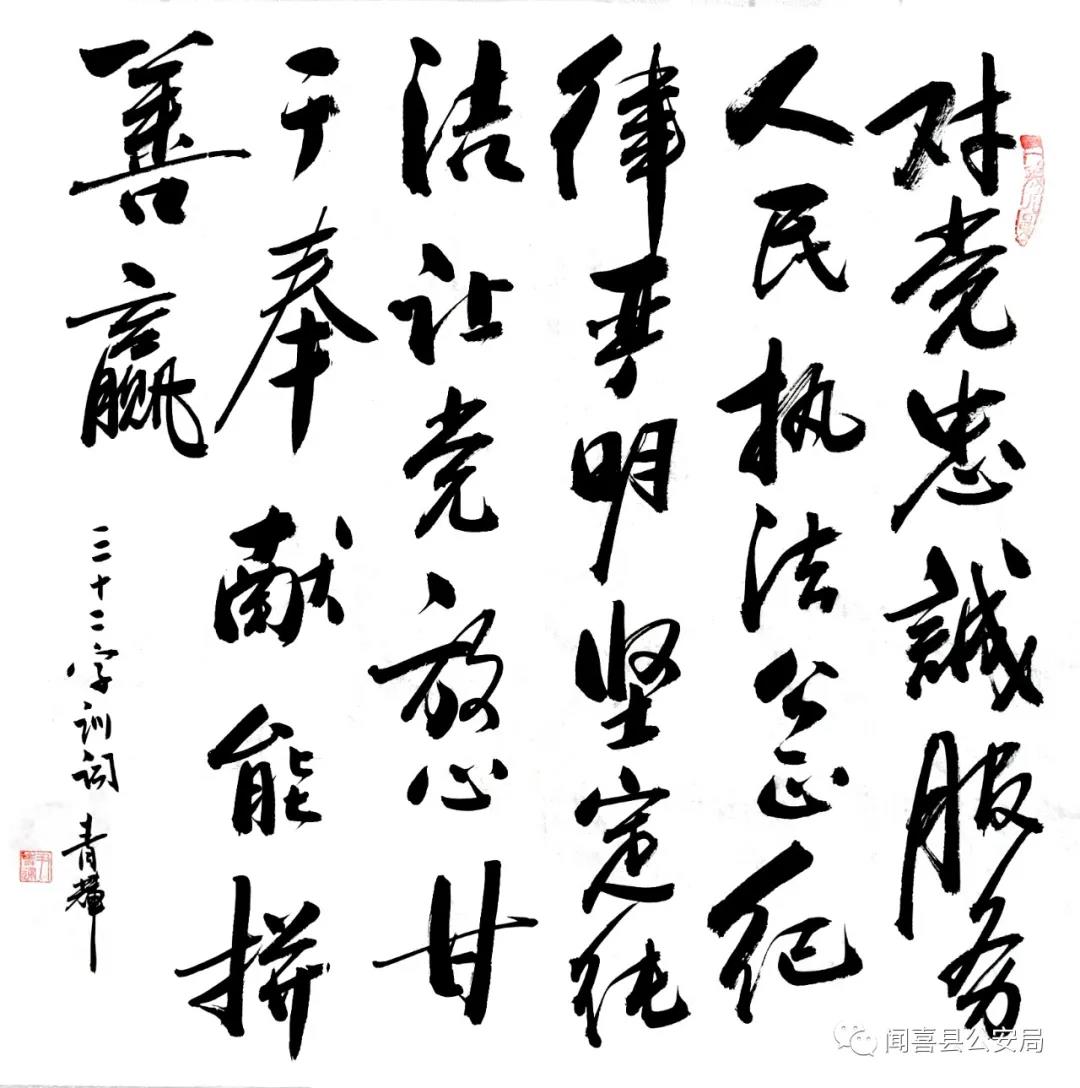 对党忠誠服务
人民执法公正纪
律严明坚定纯
洁让党放心甘
于奉献能拼
善赢
三十二字训词 青辉
闻喜县公安局